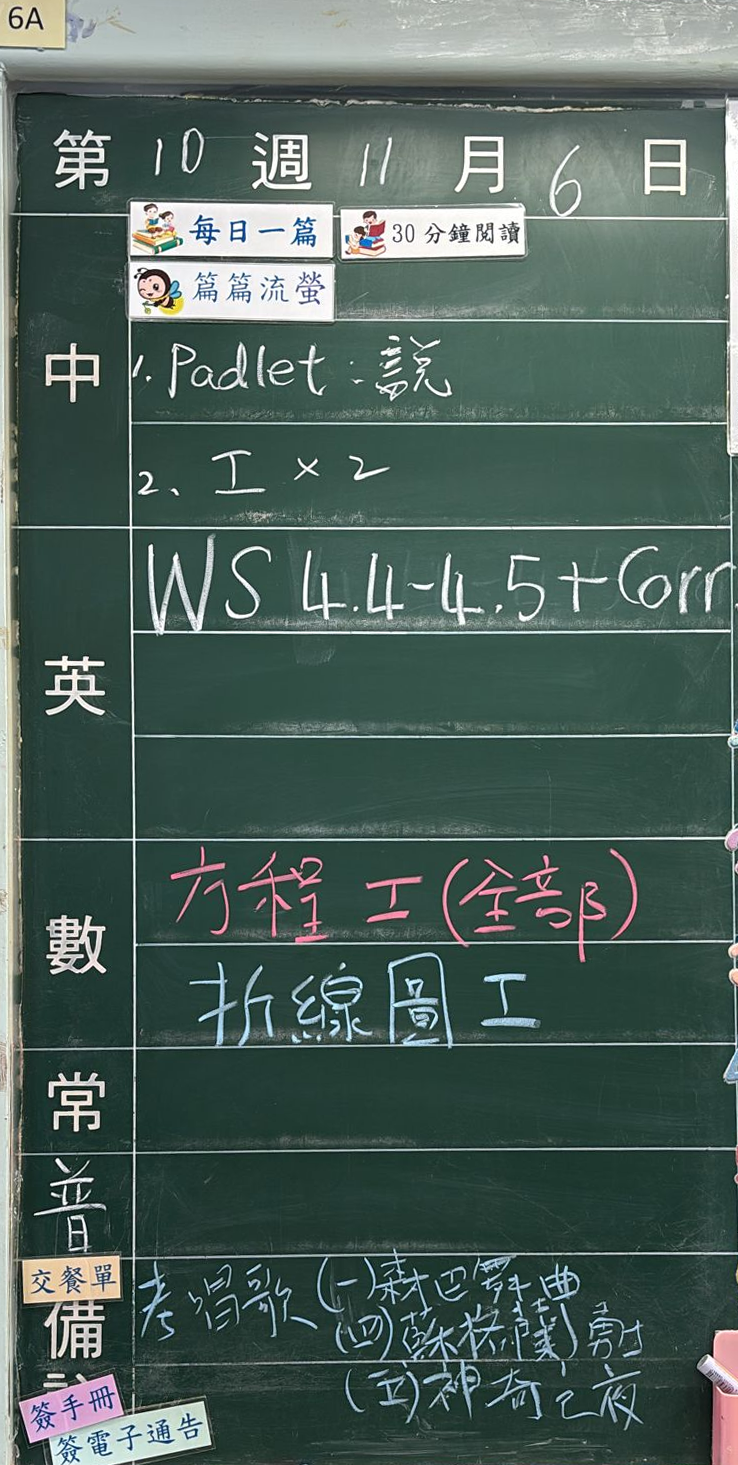 6A
第 10 週 11 月 6 日
每日一篇 30分鐘閱讀
篇篇流螢
中
1. Padlet：說
2、工 × 2
英
WS 4.4-4.5+Corr
數
方程 工(全部)
折線圖 工
常
普
交餐單
備
考唱歌 (一)森巴舞曲
(四)蘇格蘭勇士
(五)神奇之夜
簽手冊
簽電子通告